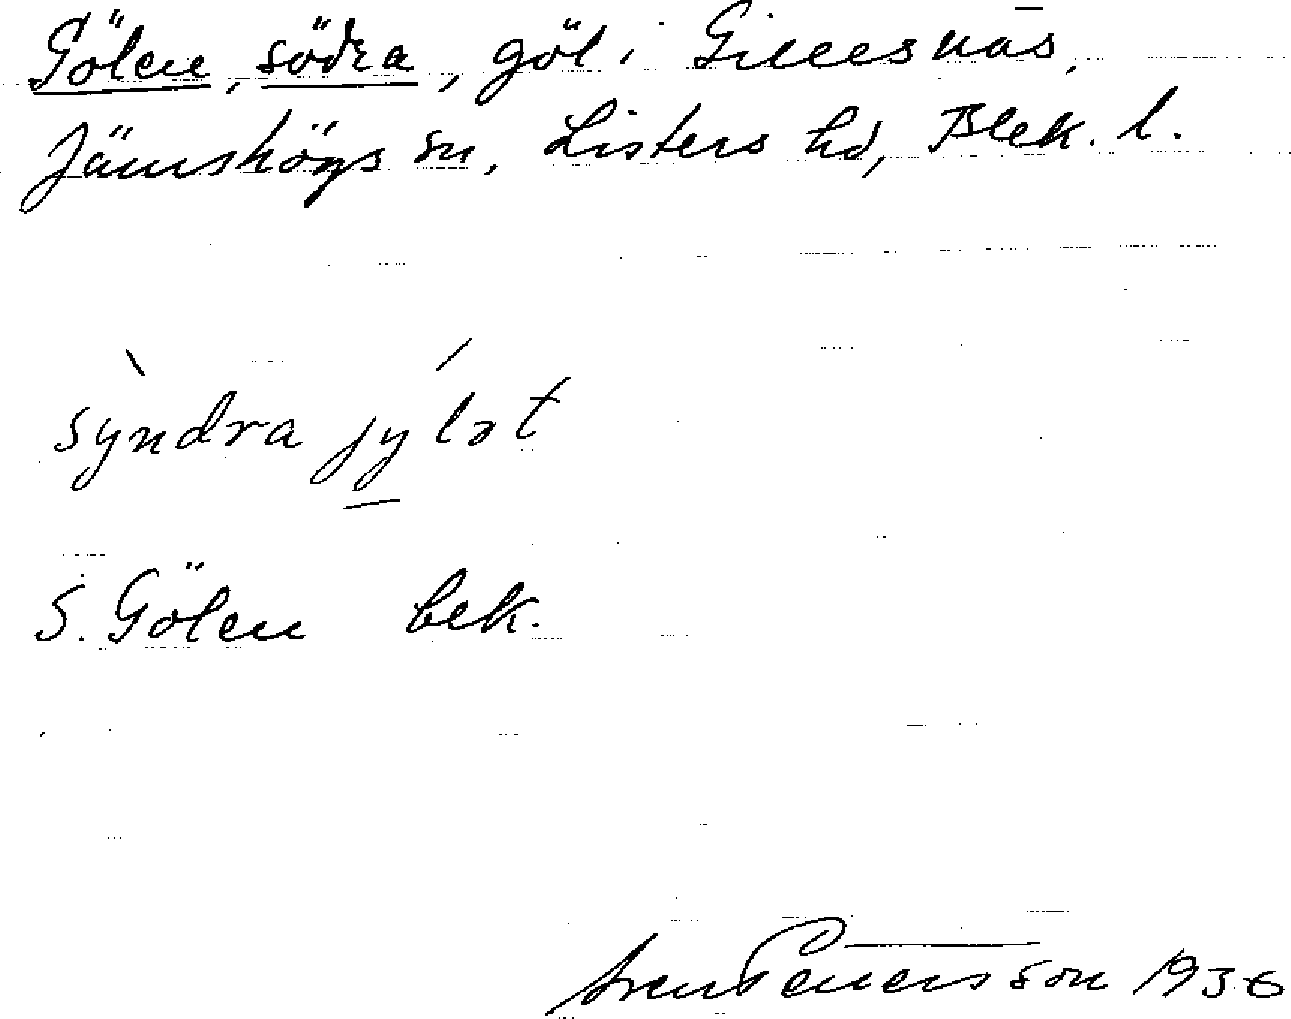 Gölen, södra, göl i Gillesnäs,
Jämshögs sn, Listers hd, Blek. l.
sỳndra jýlət
S. Gölen bek.
Sven Petersson 1936